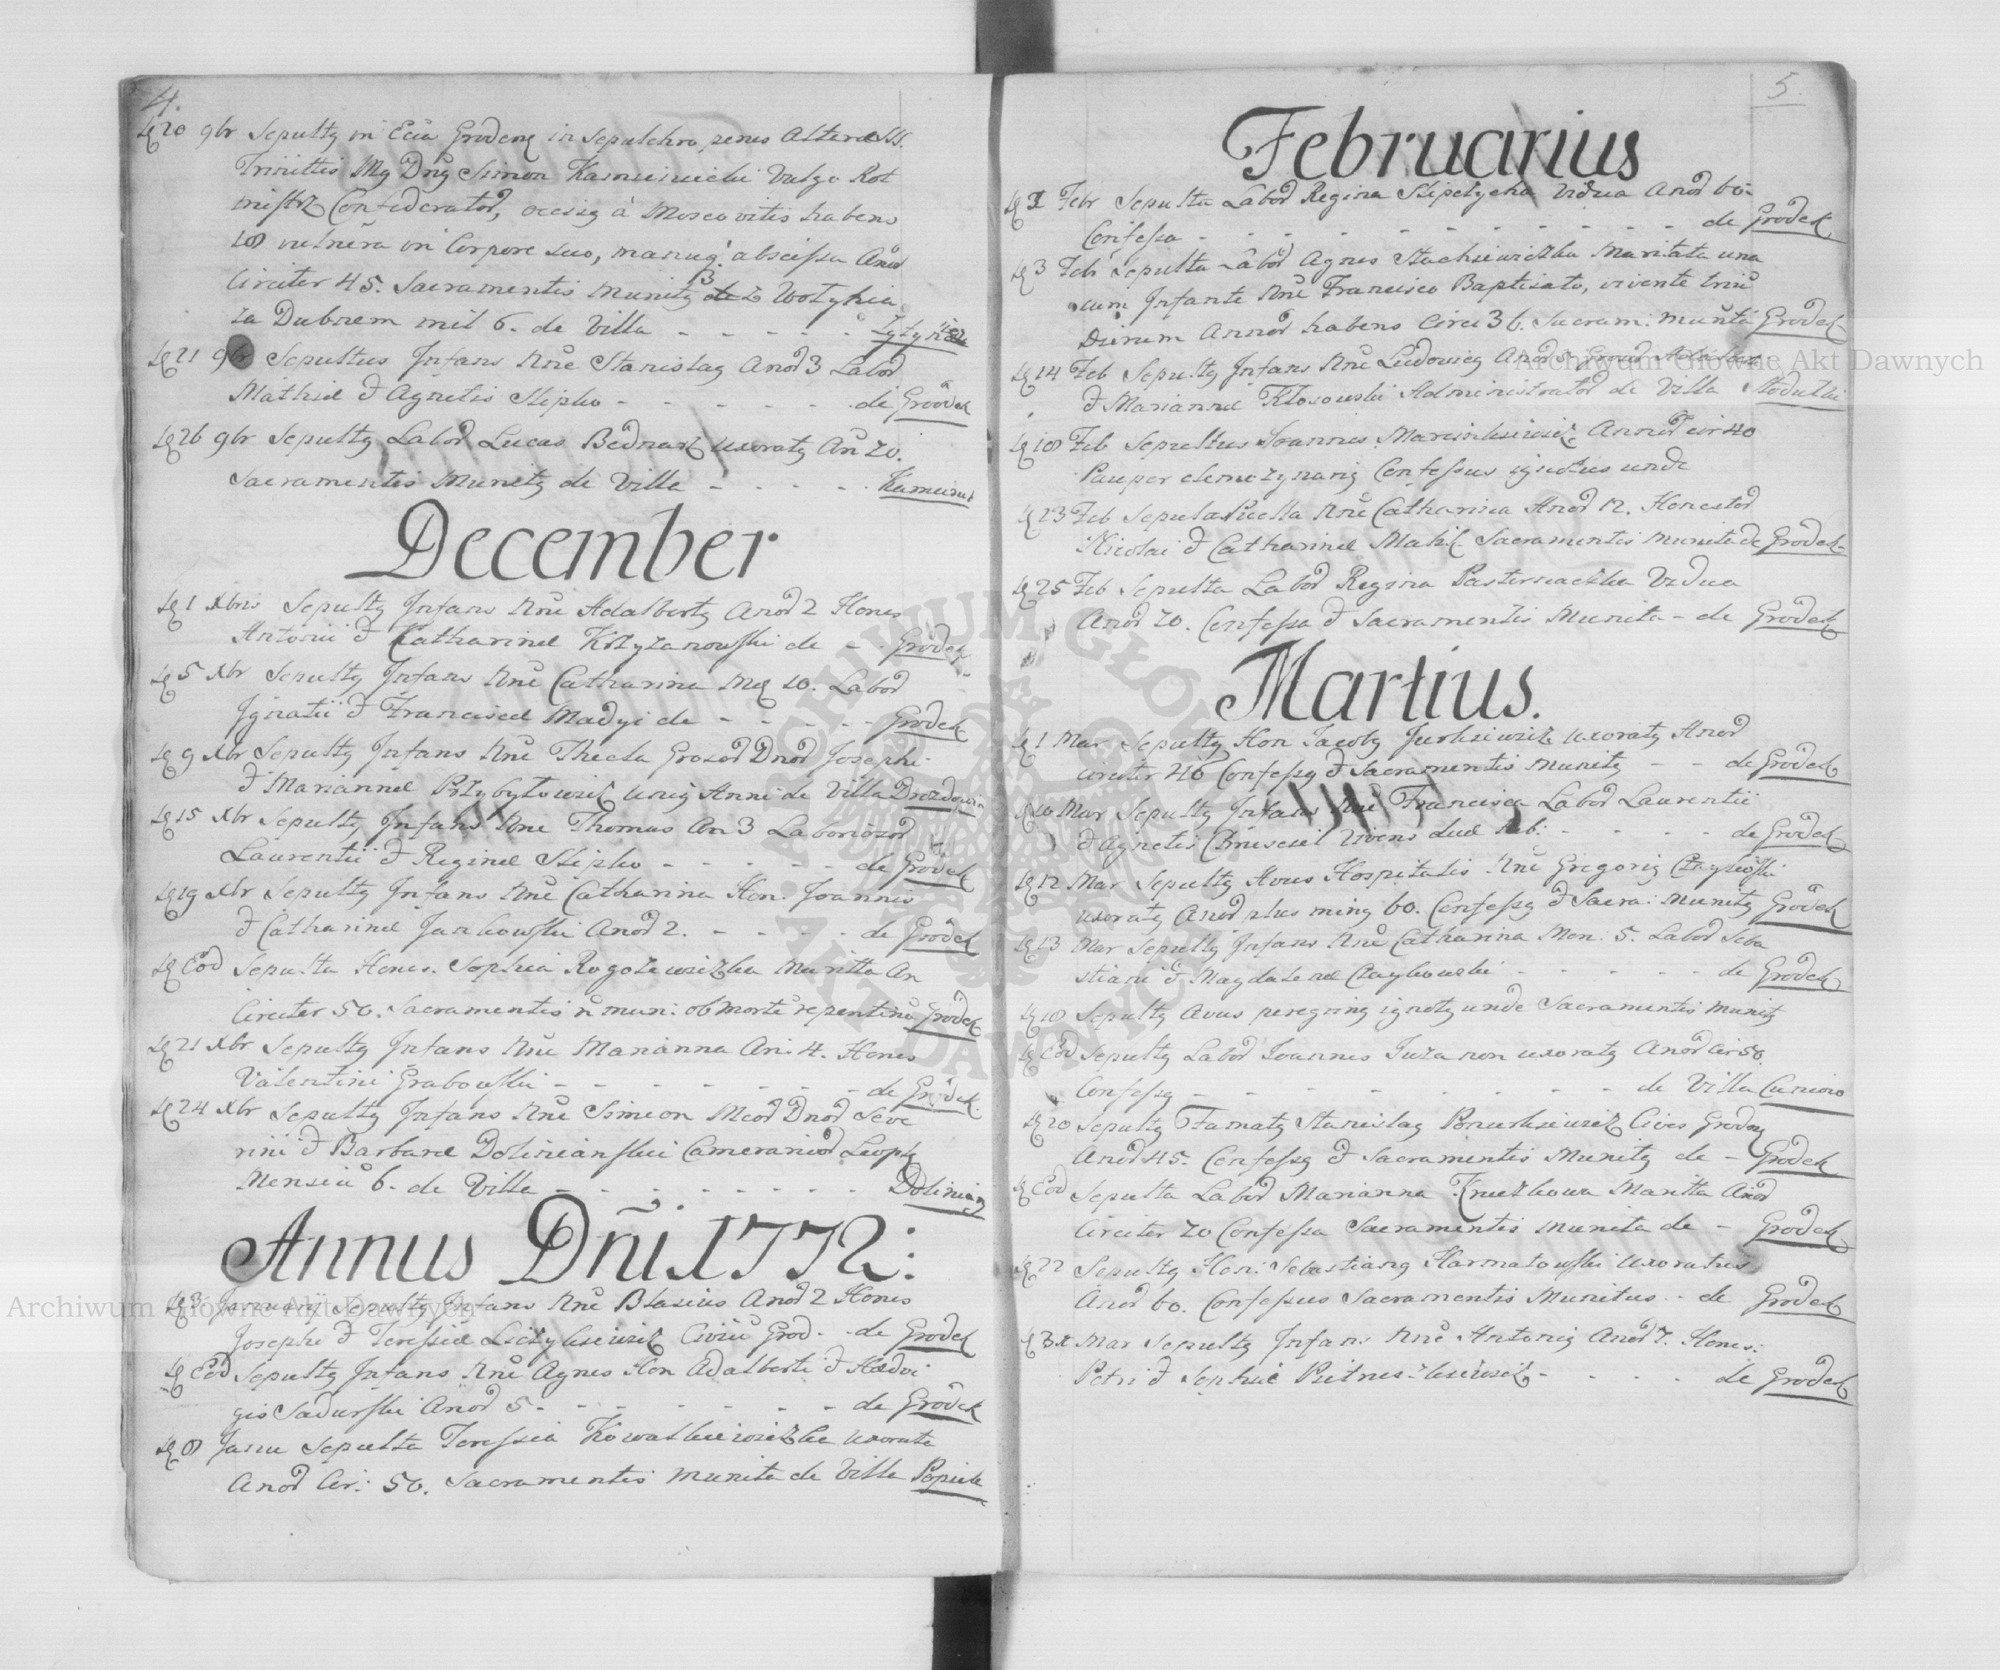 4.
20 9br Sepultq in Ecia Grodenq in Sepulchro penes Altare SS.
Trinittis Mg Dnq Simon Kamieniecki vulgo Rot
mistrz Confederatoꝝ, occisq à Moscovitis habens
18 vulnera in Corpore suo, manuq abscissa Anoꝝ
Circiter 45. Sacramentis munitq z Wołynia
za Dubnem mil 6. de Villa - - - - -
21 9br Sepultus Infans Nne Stanislaq Anoꝝ 3 Laboꝝ
Mathiæ & Agnetis Slipko - - - - - - de Grodek
26 9br Sepultq Laboꝝ Lucas Bednarz uxoratq An 70.
Sacramentis Munitq de Villa - - - -
December
1 Xbris Sepultq Infans Nne Adalbertq Anoꝝ 2 Hones
Antonii & Catharinæ Krzyzanowski de - Grodek
5 Xbr Sepultq Infans Nne Catharina Meq 10. Laboꝝ
Ignatii & Franciscæ Madyi de - - - - - Grodek
9 Xbr Sepultq Infans Nne Thecla Groꝝoꝝ Dnoꝝ Josephi
& Mariannæ Przybyłowicz uniq Anni de Villa Drozdowice
15 Xbr Sepultq Infans Nne Thomas An 3 Laborioꝝoꝝ
Laurentii & Reginæ Slipko - - - - - de Grodek
19 Xbr Sepultq Infans Nne Catharina Hon: Joannis
& Catharinæ Jankowski Anoꝝ 2. - - - - de Grodek
Eoꝺ Sepulta Hones. Sophia Rogozewiczka Maritta An
Circiter 50. Sacramentis n mun: ob morte repentinu Grodek
21 Xbr Sepultq Infans Nne Marianna An: 4. Hones
Valentini Grabowski - - - - - - - - de Grodek.
24 Xbr Sepultq Infans Nne Simeon Mcoꝝ Dnoꝝ Seve
rini & Barbaræ Dolinianski Camerarioꝝ Leopq
Mensiu 6. de Ville - - - - - - - - Dolinian
Annus Dñi 1772:
3 Januarii Sepultq Infans Nne Blasius Anoꝝ 2 Hones
Josephi & Teressiæ Liczykiewicz Civiu Grod. - de Grodek
Eoꝺ Sepultq Infans Nne Agnes Hon Adalberti & Hedvi
gis Sadurski Anoꝝ 5 - - - - - - - - de Grodek
8 Janu Sepulta Teressia Kowalkiewiczka uxorata
Anoꝝ Cir: 50. Sacramentis munita de Villa
5.
Februarius
1 Febr Sepulta Laboꝝ Regina Slipetycha Vidua Anoꝝ 60-
Confessa - - - - - - - - - - de Grodek
3 Feb Sepulta Laboꝝ Agnes Stachiewiczka Maritata una
cum Infante Nne Francisco Baptisato, vivente triu
Dierum Annoꝝ habens Circi 36. Sacram: munita Grodek
14 Feb Sepultq Infans Nne Ludovicq Anoꝝ
& Mariannæ Kłosowski Administratoꝝ de Villa Stodulki
18 Feb Sepultus Joannes Marcinkiewicz Annoꝝ cir 40
Pauper elemozynariq Confessus ignotus unde
23 Feb Sepulta Puella Nne Catharina Anoꝝ 12. Honestoꝝ
Nicolai & Catharinæ Sacramentis munita de Grodek-
25 Feb Sepulta Laboꝝ Regina Pasternaczka Vidua
Anoꝝ 70. Confessa & Sacramentis Munita - de Grodek
Martius.
1 Mar Sepultq Hon Jacobq Jurkiewicz uxoratq Anoꝝ
circiter 46 Confessq & Sacramentis munitq - - de Grodek
10 Mar Sepultq Infans Nne Franciscq Laboꝝ Laurentii
& Agnetis vivens - - - - - de Grodek
12 Mar Sepultq Avus Hospitalis Nne Gregoriq Czaykoski
uxoratq Anoꝝ plus minq 60. Confessq & Sacra: munitq Grodek
13 Mar Sepultq Infans Nne Catharina Men: 5. Laboꝝ Seba
stiani & Magdalenæ Czaykowski - - - - - - de Grodek
18 Sepultq Avus peregrinq ignotq unde Sacramentis munitq
Eoꝺ Sepultq Laboꝝ Joannes Juza non uxoratq Anoꝝ Cir 50.
Confessq - - - - - - - - de Villa Cuniow
20 Sepultq Famatq Stanislaq Ponurkiewicz Civis Grodenq
Anoꝝ 45. Confessq & Sacramentis Munitq de - Grodek
Eoꝺ Sepulta Laboꝝ Marianna Maritta Anoꝝ
Circiter 70 Confessa Sacramentis munita de - Grodek
22 Sepultq Hon: Sebastianq Harmatowski uxoratus
Anoꝝ 60. Confessus Sacramentis Munitus - de Grodek
31 Mar Sepultq Infans Nne Antoniq Anoꝝ 7. Hones:
Petri & Sophiæ - - - - - de Grodek
Archiwum Główne Akt Dawnych
Archiwum Główne Akt Dawnych
ARCHIWUM GŁÓWNE AKT DAWNYCH